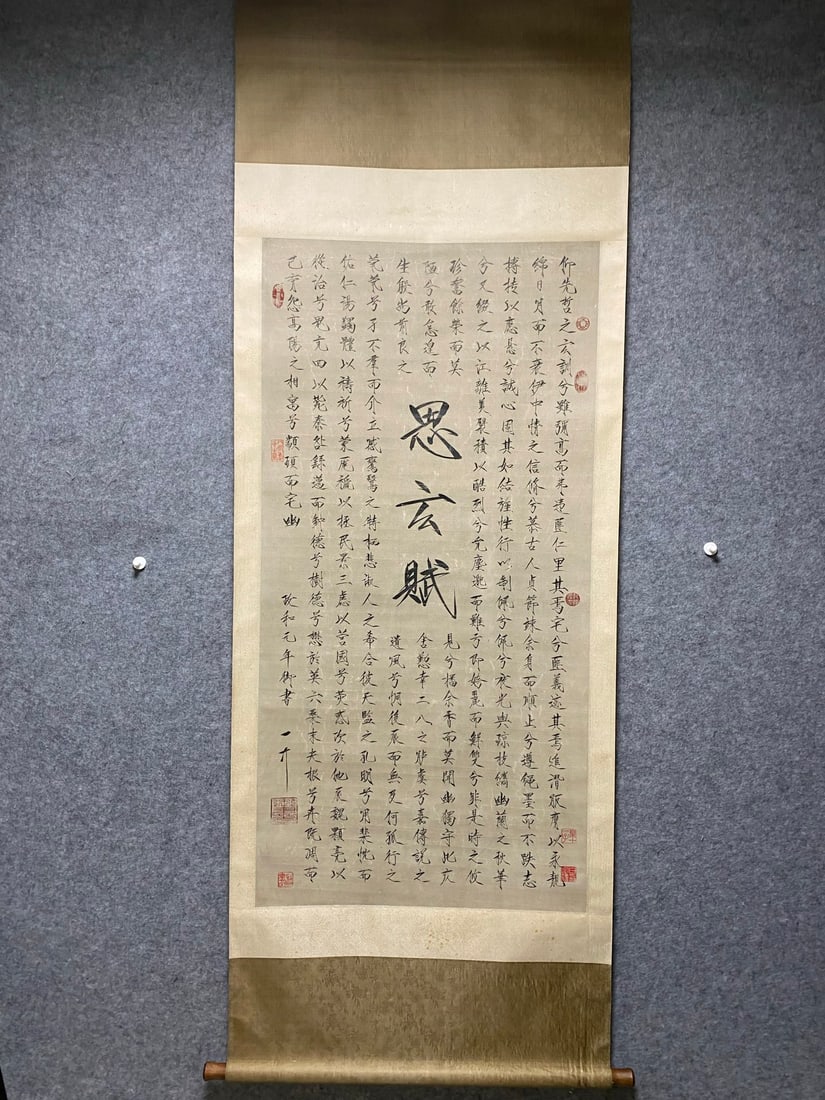 仰先哲之玄訓兮雖彌高而弗違匪仁里其焉宅兮匪義迹其焉追潛服膺以永靚
綿日月而不衰伊中情之信脩兮慕古人貞節竦余身而順止兮遵繩墨而不跌志
摶摶以應懸兮誠心固其如結旌性行以制佩兮佩夜光與瓊枝繢幽蘭之秋華
兮又綴之以江蘺美襞積以酷烈兮允塵邈而難亏即姱麗而鮮雙兮非是時之攸
珍奮餘榮而莫
陋兮敢怠遑而
生殷尚前良之
思玄賦
見兮播余香而莫聞幽獨守此仄
舍懃幸二八之遻虞兮嘉傅說之
遺風兮恫後辰而無及何孤行之
煢煢兮孑不羣而介立感鸞鷖之特栖悲淑人之希合彼天監之孔明兮用棐忱而
佑仁湯蠲體以禱祈兮蒙厖禠以拯民景三慮以營國兮熒惑次於他辰魏顆亮以
從治兮鬼亢回以斃秦咎繇邁而種德兮樹德兮懋於英六桑末夫根兮卉既凋而
已育怨高陽之相寓兮顓頊而宅幽
政和元年御書